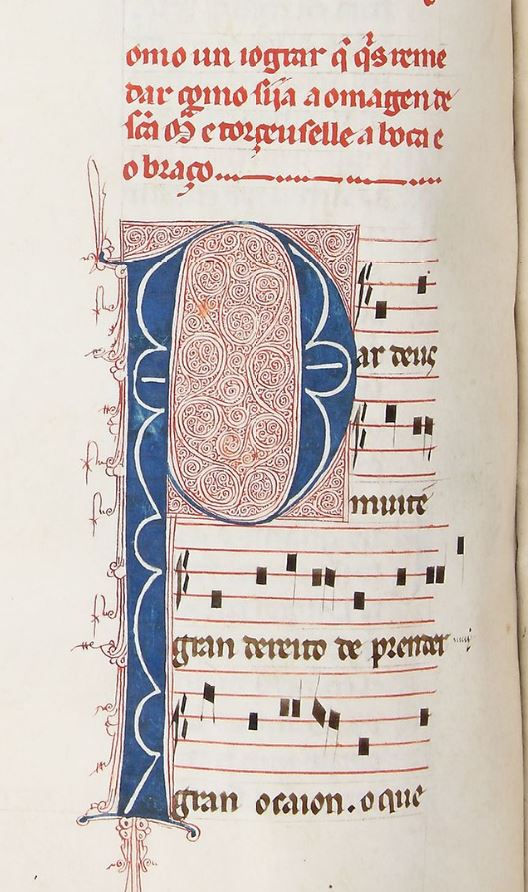 omo un iograr q̄ q̄s reme
dar como sija a omagen de
sc̄a M̄ e torçeuselle a boca e
o braço
Par deus
muit é
gran dereito de prender
gran ocaion. o que